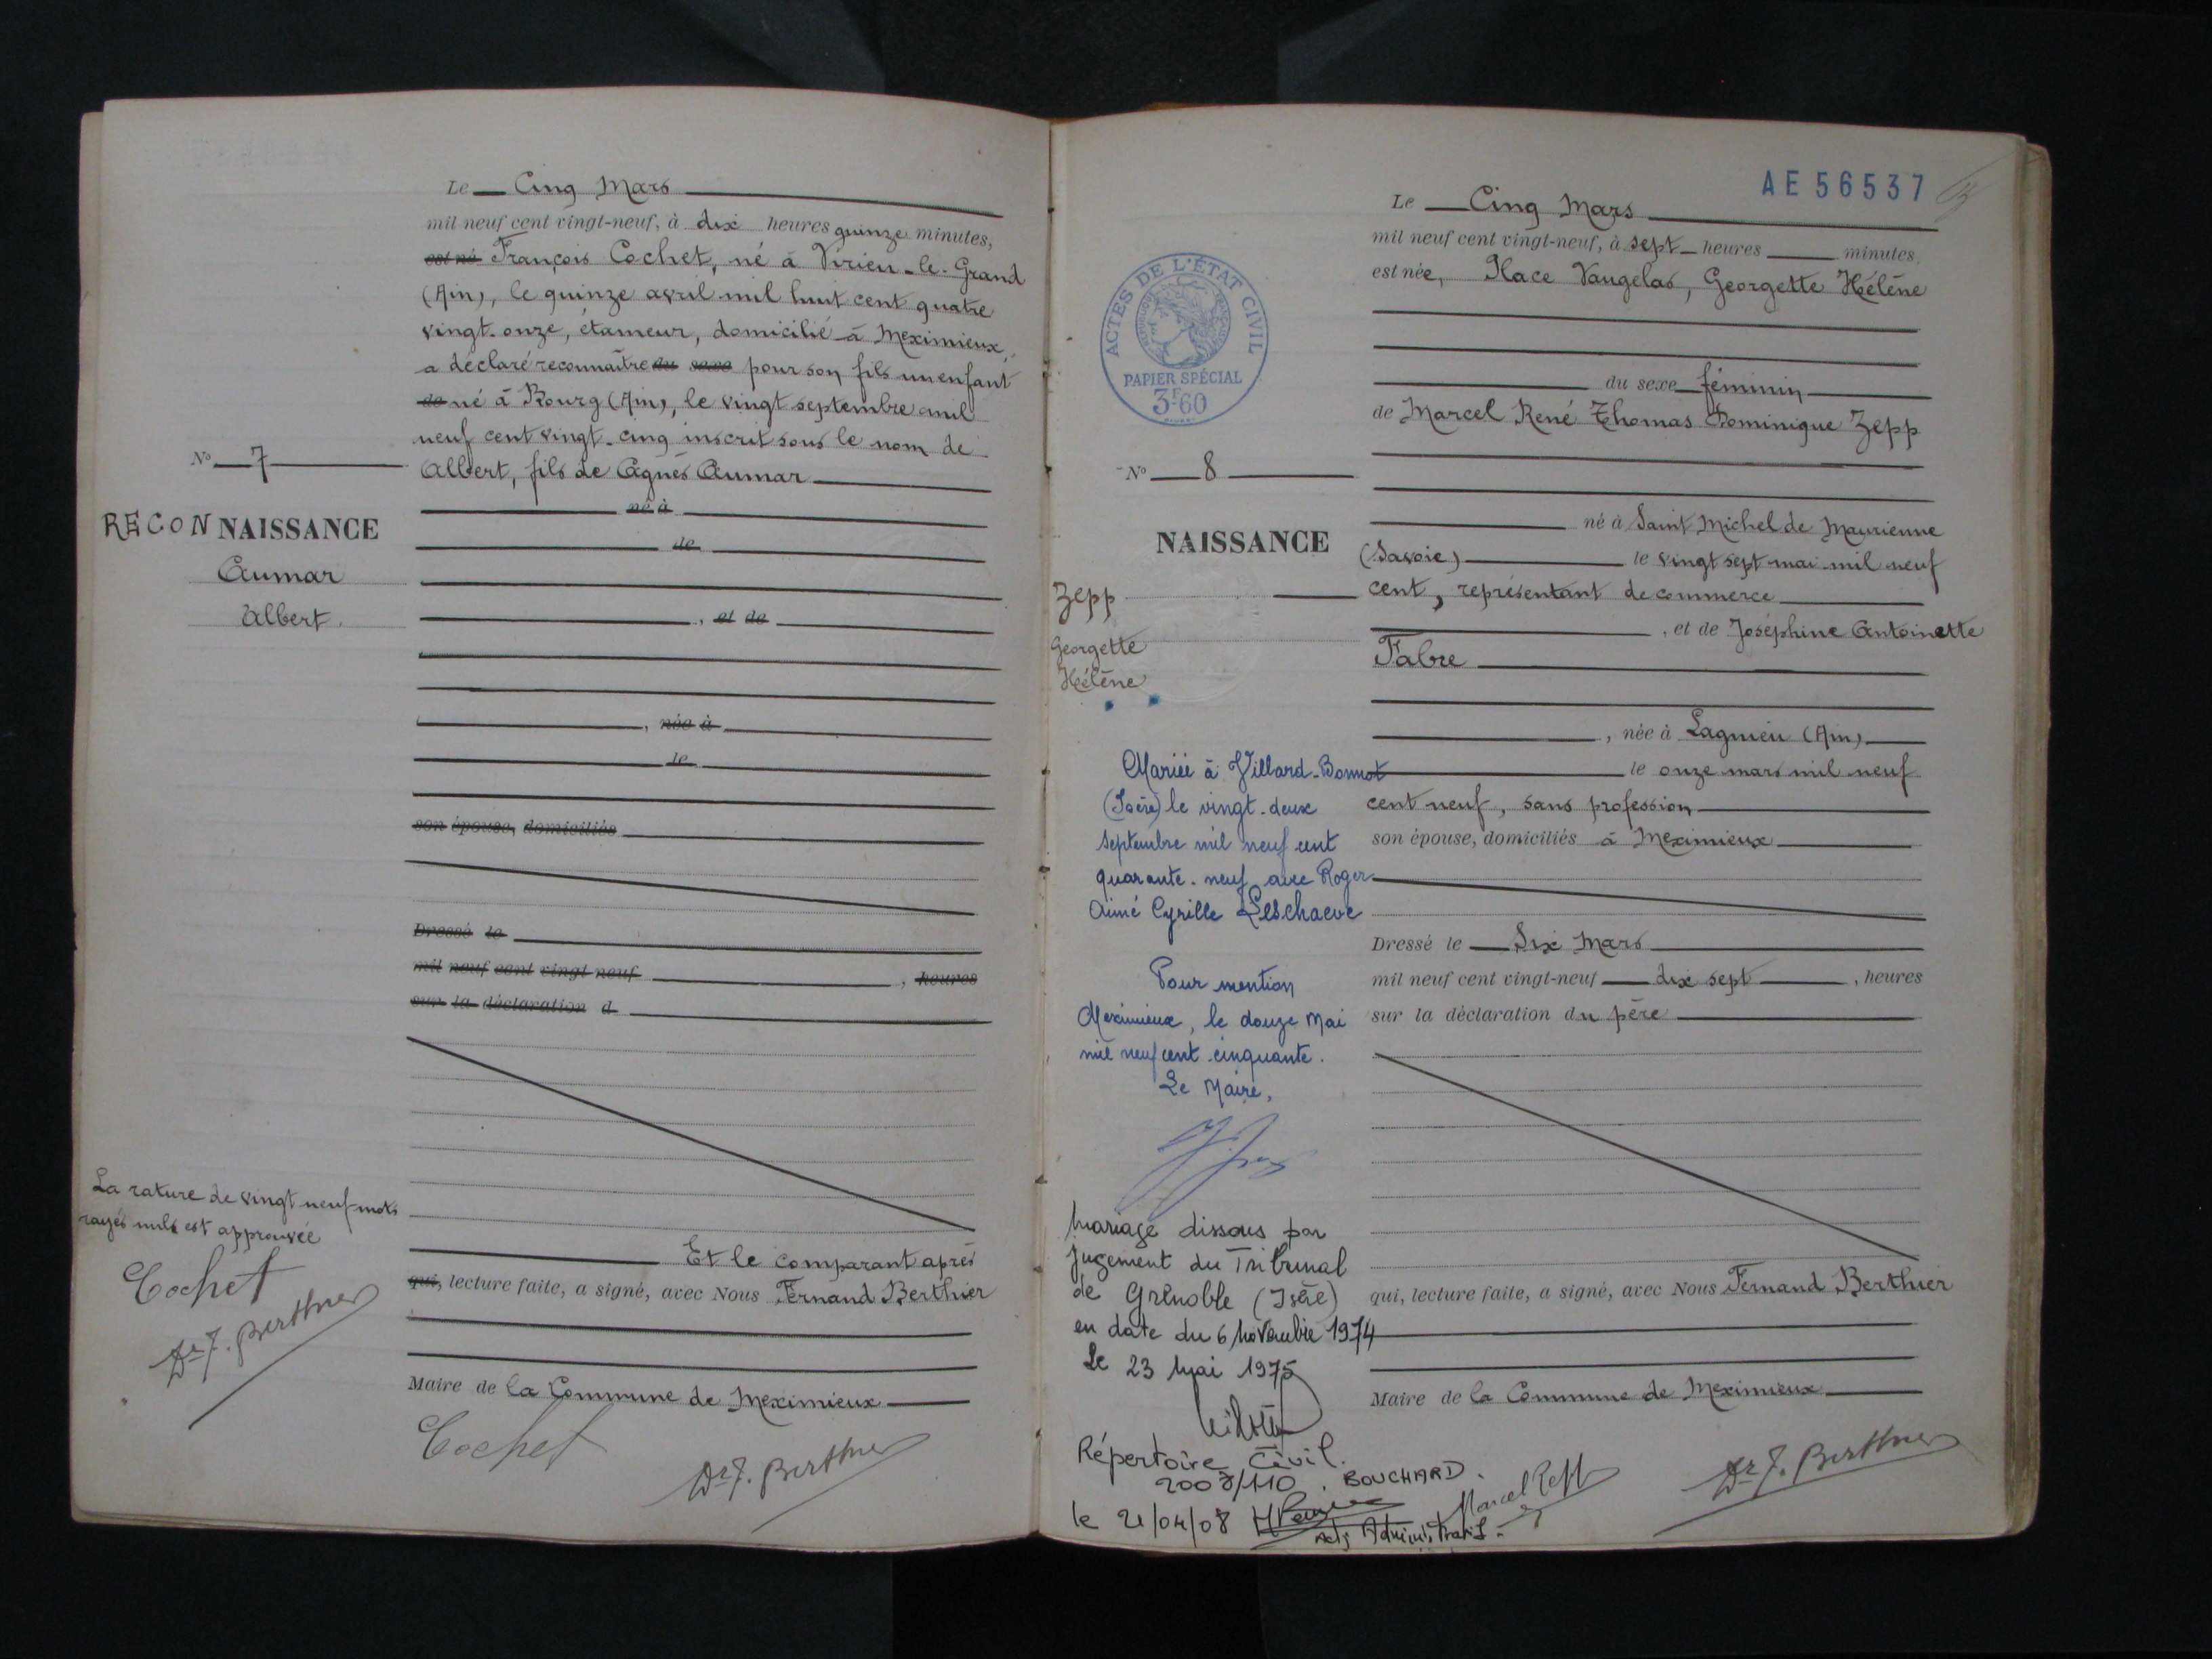 Le Cinq Mars
mil neuf cent vingt-neuf, à dix heures quinze minutes,
est né François Cochet, né à Virieu-le-Grand
(Ain), le quinze avril mil huit cent quatre
vingt-onze, étameur, domicilié à Meximieux,
a déclaré reconnaître du sexe pour son fils un enfant
de né à Bourg (Ain), le vingt septembre mil
neuf cent vingt-cinq inscrit sous le nom de
Albert, fils de Agnès Aumar
né à
de
, et de
, née à
le
son épouse, domiciliés
Dressé le
mil neuf cent vingt-neuf , heures
sur la déclaration d
Et le comparant après
qui, lecture faite, a signé, avec Nous Fernand Berthier
Maire de la Commune de Meximieux
Cochet
Dr F. Berthier
N° 7
RECONNAISSANCE
Aumar
Albert.
La rature de vingt neuf mots
rayés nuls est approuvée
Cochet
Dr F. Berthier
AE 56537
Le Cinq Mars
mil neuf cent vingt-neuf, à sept heures minutes,
est née, Place Vaugelas, Georgette Hélène
du sexe féminin
de Marcel René Thomas Dominique Zepp
né à Saint Michel de Maurienne
(Savoie) le vingt sept mai mil neuf
cent, représentant de commerce
, et de Joséphine Antoinette
Fabre
, née à Lagnieu (Ain)
le onze mars mil neuf
cent neuf, sans profession
son épouse, domiciliés à Meximieux
Dressé le Six Mars
mil neuf cent vingt-neuf dix sept , heures
sur la déclaration du père
qui, lecture faite, a signé, avec Nous Fernand Berthier
Maire de la Commune de Meximieux
Marcel Zepp
Dr F. Berthier
ACTES DE L'ÉTAT CIVIL
PAPIER SPÉCIAL
3F60
N° 8
NAISSANCE
Zepp
Georgette
Hélène
Mariée à Villard-Bonnot
(Isère) le vingt-deux
septembre mil neuf cent
quarante-neuf avec Roger
Aimé Cyrille Leschaeve
Pour mention
Meximieux, le douze Mai
mil neuf cent cinquante.
Le Maire,
Mariage dissous par
jugement du Tribunal
de Grenoble (Isère)
en date du 6 novembre 1974
Le 23 Mai 1975
Répertoire Civil.
/110. BOUCHARD.
le 21/04/08
Adj Administratif.